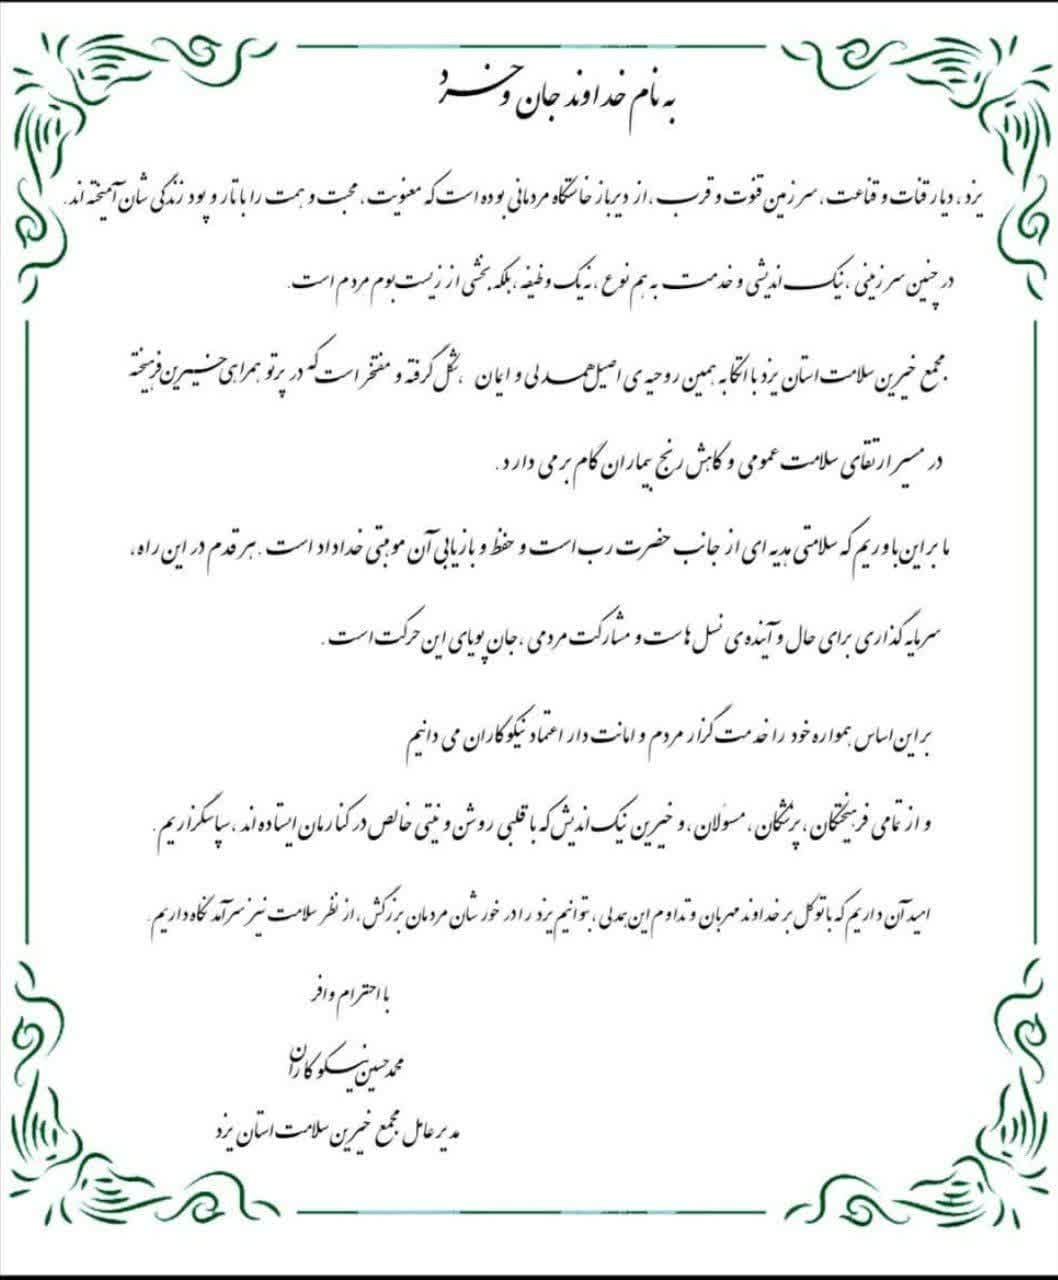 به نام خداوند جان و خرد
یزد، دیار قنات و قناعت، سرزمین قنوت و قرب، از دیرباز خاستگاه مردمانی بوده است که معنویت، محبت و همت را با تار و پود زندگی شان آمیخته اند.
در چنین سرزمینی، نیک اندیشی و خدمت به هم نوع، نه یک وظیفه، بلکه بخشی از زیست بوم مردم است.
مجمع خیرین سلامت استان یزد با اتکا به همین روحیه ی اصیل همدلی و ایمان، شکل گرفته و مفتخر است که در پرتو همراهی خیرین فرهیخته
در مسیر ارتقای سلامت عمومی و کاهش رنج بیماران گام برمی دارد.
ما بر این باوریم که سلامتی هدیه ای از جانب حضرت رب است و حفظ و بازیابی آن موهبتی خداداد است. هر قدم در این راه،
سرمایه گذاری برای حال و آینده ی نسل هاست و مشارکت مردمی، جان پویای این حرکت است.
بر این اساس همواره خود را خدمت گزار مردم و امانت دار اعتماد نیکوکاران می دانیم
و از تمامی فرهیختگان، پزشکان، مسئولان، و خیرین نیک اندیش که با قلبی روشن و نیتی خالص در کنارمان ایستاده اند، سپاسگزاریم.
امید آن داریم که با توکل بر خداوند مهربان و تداوم این همدلی، بتوانیم یزد را در خور شان مردمان بزرگش، از نظر سلامت نیز سرآمد نگاه داریم.
با احترام وافر
محمد حسین نیکوکاران
مدیر عامل مجمع خیرین سلامت استان یزد